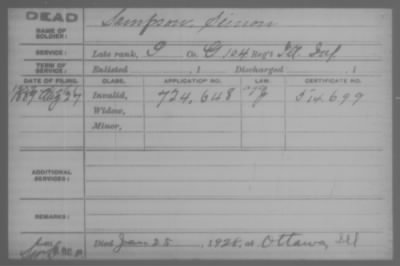 DEAD
NAME OF SOLDIER: Sampson, Simon
SERVICE: Late rank, P Co. G 104 Reg't Ill. Inf
TERM OF SERVICE: Enlisted , 1 Discharged , 1
DATE OF FILING. CLASS. APPLICATION NO. LAW. CERTIFICATE NO.
1889 Aug 27 Invalid, 724,648 514,699
Widow,
Minor,
ADDITIONAL SERVICES:
REMARKS:
Died Jan 25, 1928, at Ottawa, Ill